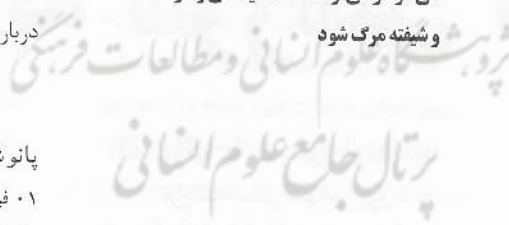 و شیفته مرگ شود
دربار
پژوهشگاه علوم انسانی و مطالعات فرهنگی
پرتال جامع علوم انسانی
پانو
۰۱ ف